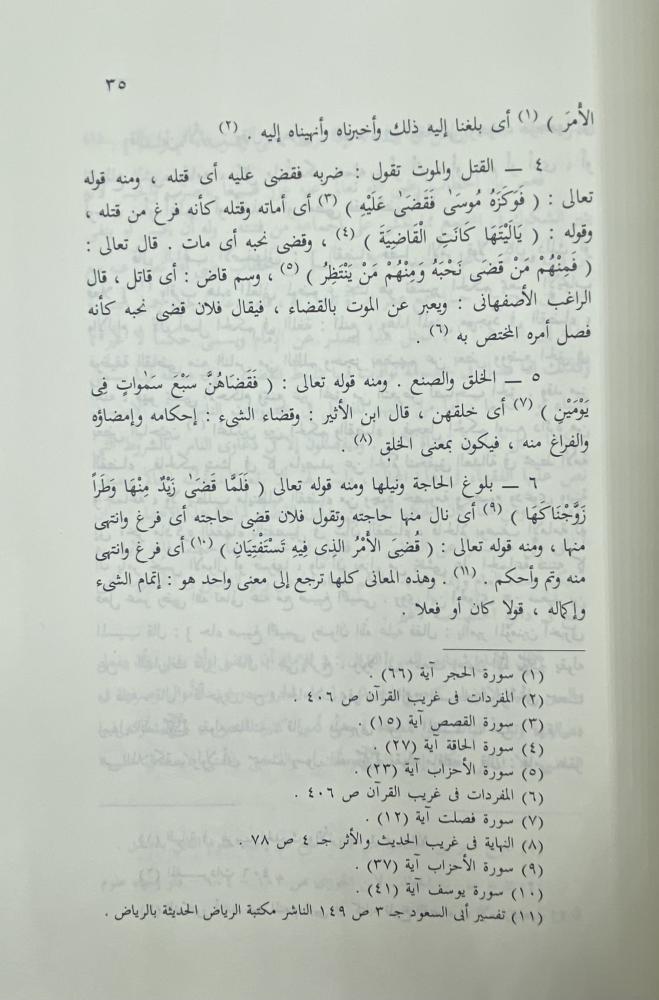 ٣٥
الأَمْرَ ) (١) أى بلغنا إليه ذلك وأخبرناه وأنهيناه إليه . (٢)
٤ ــ القتل والموت تقول : ضربه فقضى عليه أى قتله ، ومنه قوله
تعالى : ( فَوَكَزَهُ مُوسَىٰ فَقَضَىٰ عَلَيْهِ ) (٣) أى أماته وقتله كأنه فرغ من قتله ،
وقوله : ( يَالَيْتَهَا كَانَتِ الْقَاضِيَةَ ) (٤) ، وقضى نحبه أى مات . قال تعالى :
( فَمِنْهُمْ مَنْ قَضَى نَحْبَهُ وَمِنْهُمْ مَنْ يَنْتَظِرُ ) (٥) ، وسم قاض : أى قاتل ، قال
الراغب الأصفهانى : ويعبر عن الموت بالقضاء ، فيقال فلان قضى نحبه كأنه
فصل أمره المختص به (٦) .
٥ ــ الخلق والصنع . ومنه قوله تعالى : ( فَقَضَاهُنَّ سَبْعَ سَمٰوَاتٍ فِى
يَوْمَيْنِ ) (٧) أى خلقهن ، قال ابن الأثير : وقضاء الشىء : إحكامه وإمضاؤه
والفراغ منه ، فيكون بمعنى الخلق (٨) .
٦ ــ بلوغ الحاجة ونيلها ومنه قوله تعالى ( فَلَمَّا قَضَىٰ زَيْدٌ مِنْهَا وَطَراً
زَوَّجْنَاكَهَا ) (٩) أى نال منها حاجته وتقول فلان قضى حاجته أى فرغ وانتهى
منها ، ومنه قوله تعالى : ( قُضِىَ الأَمْرُ الَّذِى فِيهِ تَسْتَفْتِيَانِ ) (١٠) أى فرغ وانتهى
منه وتم وأحكم . (١١) . وهذه المعانى كلها ترجع إلى معنى واحد هو : إتمام الشىء
وإكماله ، قولا كان أو فعلا .
(١) سورة الحجر آية (٦٦) .
(٢) المفردات فى غريب القرآن ص ٤٠٦ .
(٣) سورة القصص آية (١٥) .
(٤) سورة الحاقة آية (٢٧) .
(٥) سورة الأحزاب آية (٢٣) .
(٦) المفردات فى غريب القرآن ص ٤٠٦ .
(٧) سورة فصلت آية (١٢) .
(٨) النهاية فى غريب الحديث والأثر جـ ٤ ص ٧٨ .
(٩) سورة الأحزاب آية (٣٧) .
(١٠) سورة يوسف آية (٤١) .
(١١) تفسير أبى السعود جـ ٣ ص ١٤٩ الناشر مكتبة الرياض الحديثة بالرياض .